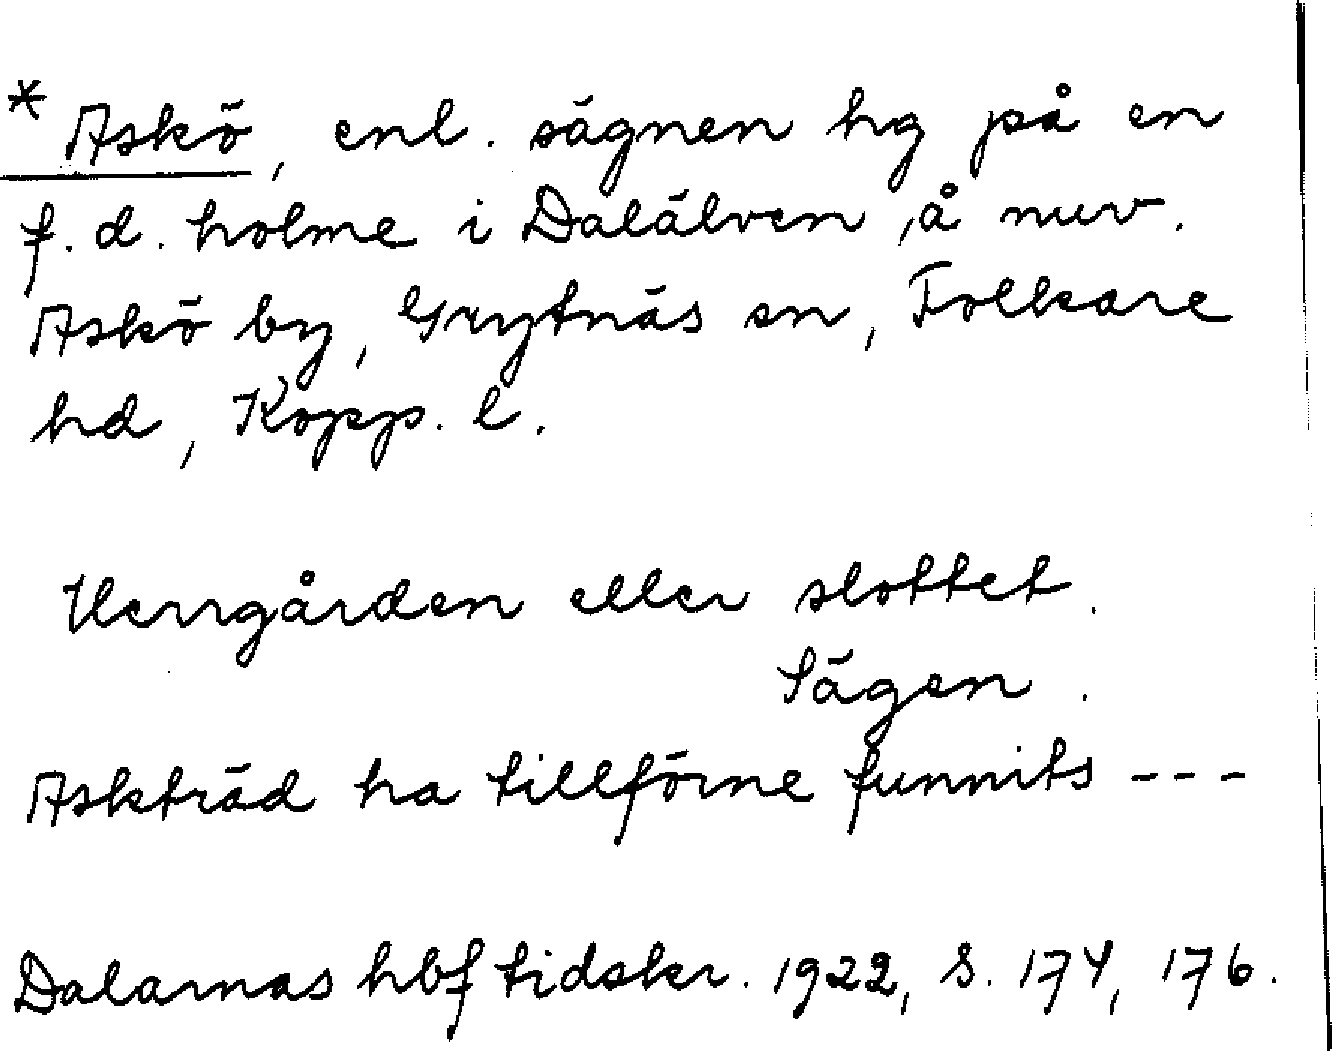 * Askö, enl. sägnen hg på en
f.d. holme i Dalälven, å nuv.
Askö by, Grytnäs sn, Folkare
hd, Kopp. l.
Herrgården eller slottet.
Sägen.
Askträd ha tillförne funnits ---
Dalarnas hbf tidskr. 1922, s. 174, 176.